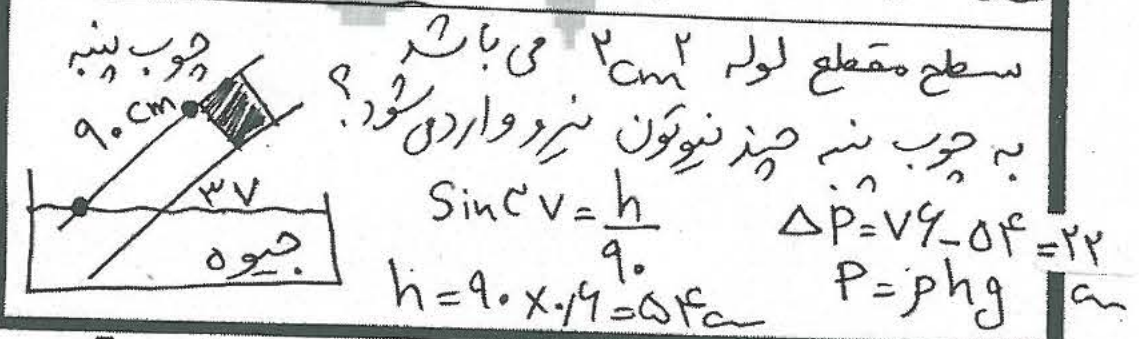 سطح مقطع لوله ۲cm² می باشد
به چوب پنبه چند نیوتون نیرو وارد می شود؟
چوب پنبه
۹۰cm
۳۷
جیوه
Sin۳۷=h/۹۰
h=۹۰×۰/۶=۵۴cm
ΔP=۷۶-۵۴=۲۲cm
P=ρhg